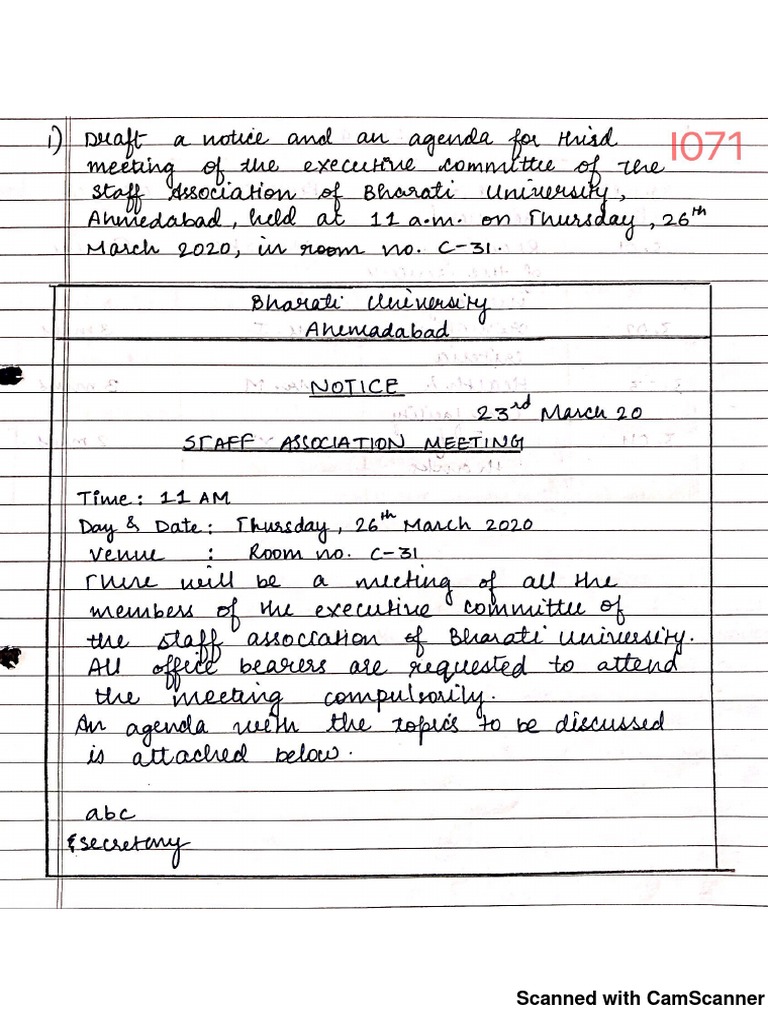 i) Draft a notice and an agenda for third
I071
meeting of the executive committee of the
Staff Association of Bharati University,
Ahmedabad, held at 11 a.m. on Thursday, 26th
March 2020, in room no. C-31.
Bharati University
Ahemadabad
NOTICE
23rd March 20
STAFF ASSOCIATION MEETING
Time: 11 AM
Day & Date: Thursday, 26th March 2020
Venue : Room no. C-31
There will be a meeting of all the
members of the executive committee of
the staff association of Bharati University.
All office bearers are requested to attend
the meeting compulsorily.
An agenda with the topics to be discussed
is attached below.
abc
Secretary
Scanned with CamScanner